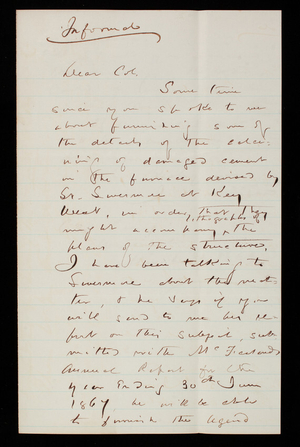 Informal
Dear Col.
Some time
since you spoke to me
about furnishing some of
the details of the calci-
ning of damaged cement
in the furnace devised by
at Key
West, in order, that they
might accompany the
plans of the structure.
I have been talking to
about the mat-
ter, & he says if you
will send to me his re-
port on this subject, sub-
mitted with McFarland's
Annual Report for the
year Ending 30th June
1867, he will be able
to furnish the